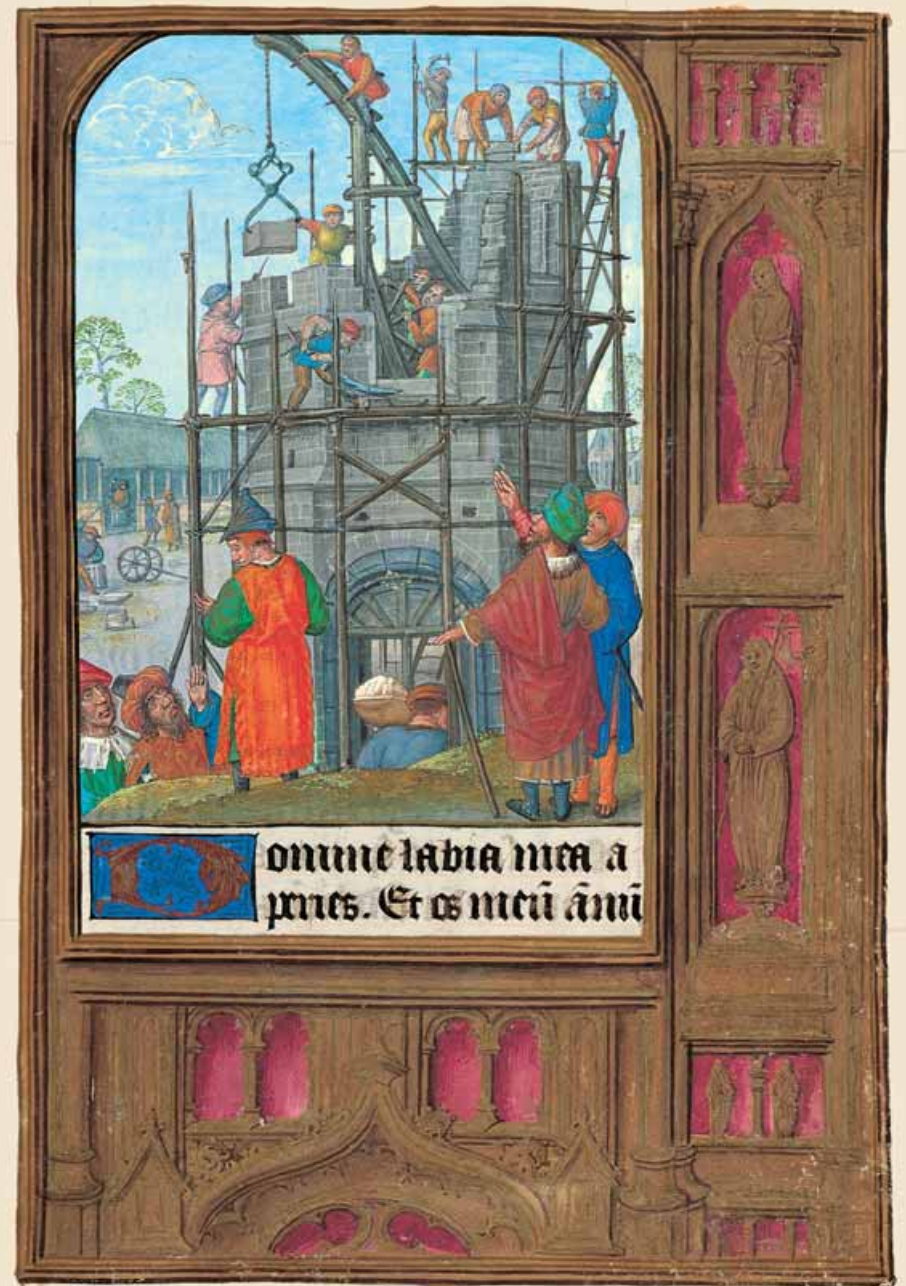 Domine labia mea a
peries. Et os meū ānnū